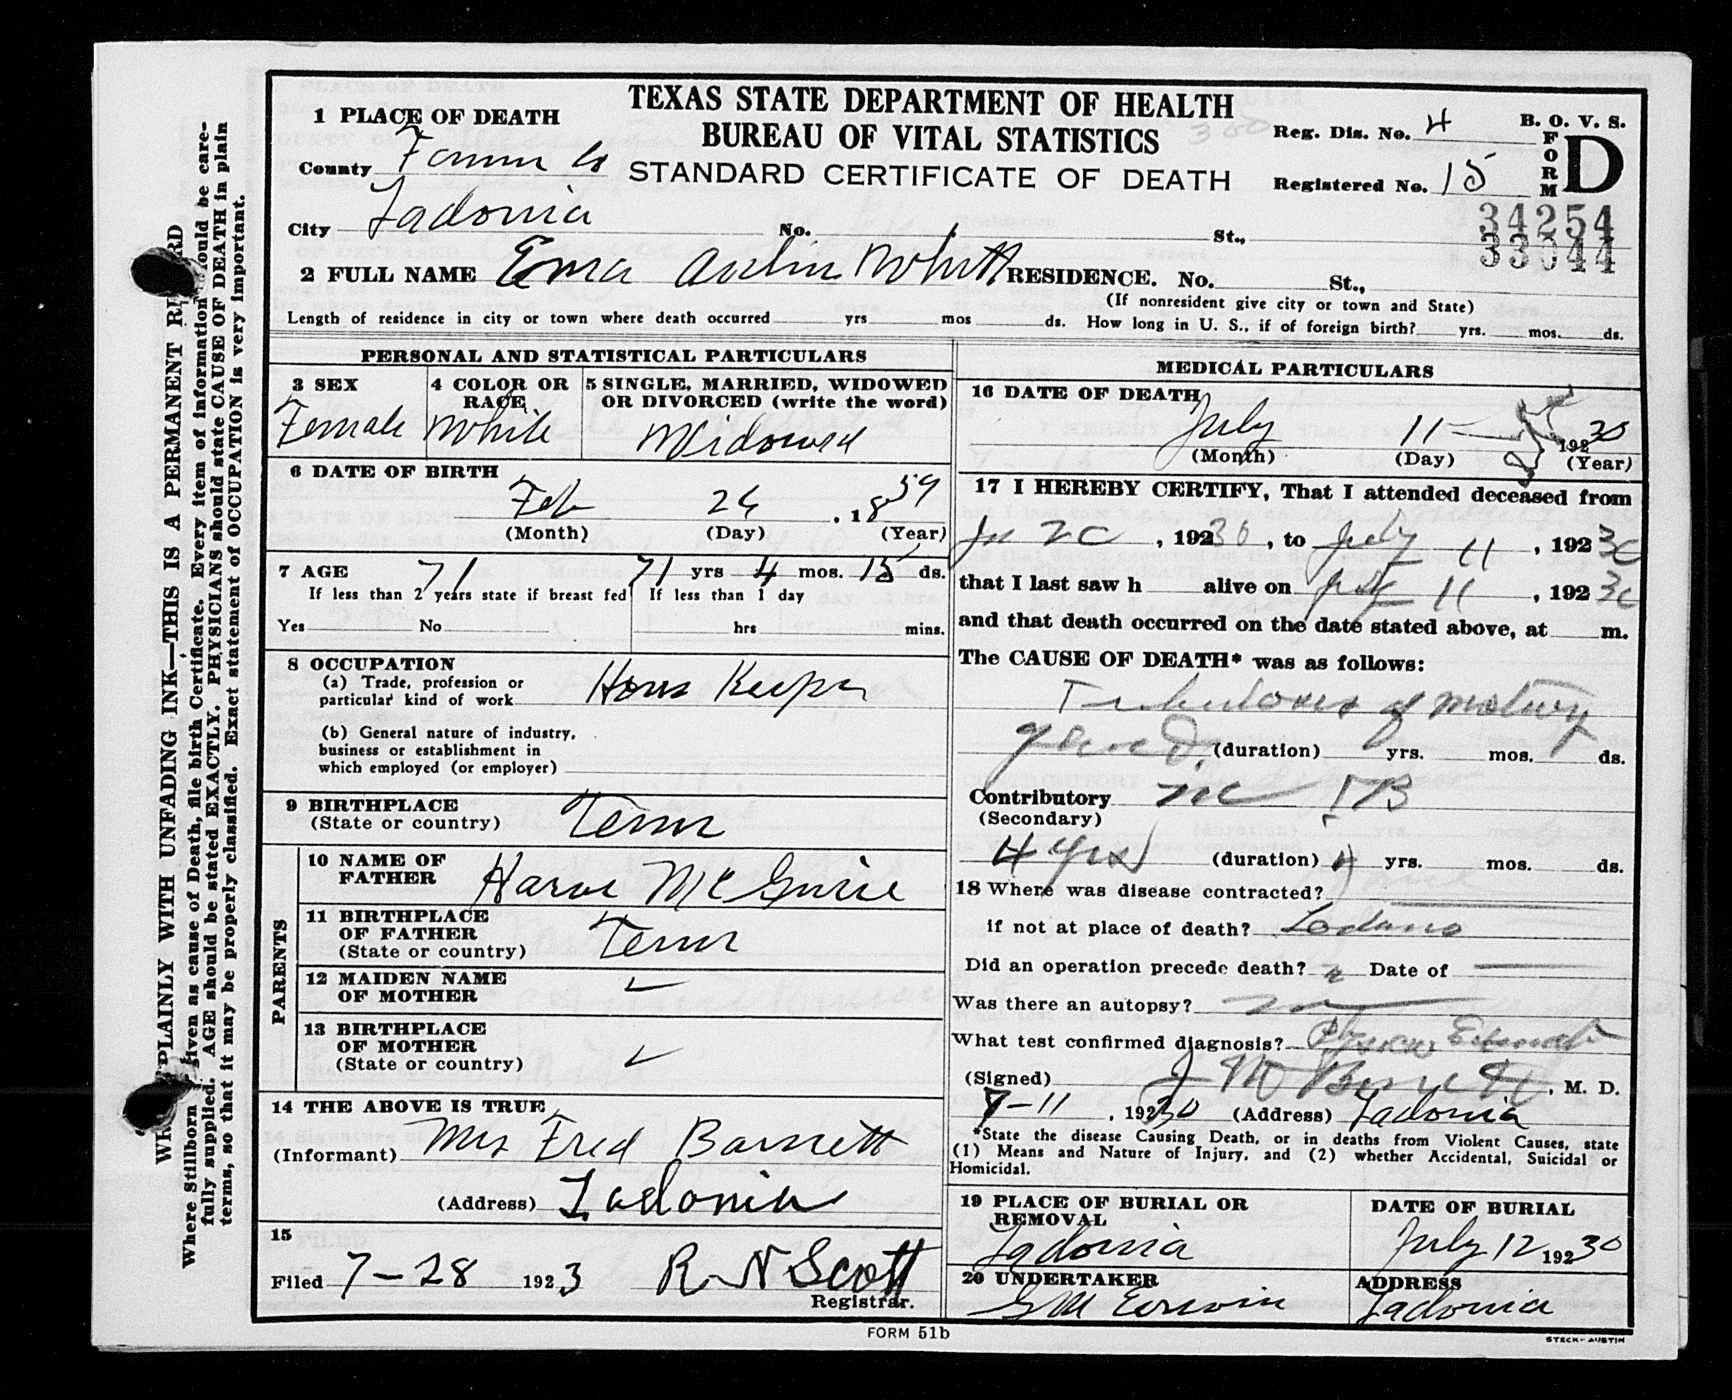 WRITE PLAINLY WITH UNFADING INK—THIS IS A PERMANENT RECORD
Where Stillborn given as cause of Death, file birth Certificate. Every item of information should be care-
fully supplied. AGE should be stated EXACTLY. PHYSICIANS should state CAUSE OF DEATH in plain
terms, so that it may be properly classified. Exact statement of OCCUPATION is very important.
TEXAS STATE DEPARTMENT OF HEALTH
BUREAU OF VITAL STATISTICS
STANDARD CERTIFICATE OF DEATH
1 PLACE OF DEATH
County
City Ladonia No. St.,
Reg. Dis. No. 4
Registered No. 15
B. O. V. S.
FORM D
34254
33044
2 FULL NAME RESIDENCE. No. St.,
(If nonresident give city or town and State)
Length of residence in city or town where death occurred yrs mos ds. How long in U. S., if of foreign birth? yrs. mos. ds.
PERSONAL AND STATISTICAL PARTICULARS
3 SEX
Female
4 COLOR OR RACE
White
5 SINGLE, MARRIED, WIDOWED
OR DIVORCED (write the word)
Widowed
6 DATE OF BIRTH
Feb , 1859
(Month) (Day) (Year)
7 AGE 71 71 yrs 4 mos. 15 ds.
If less than 2 years state if breast fed If less than 1 day
Yes No hrs mins.
8 OCCUPATION
(a) Trade, profession or
particular kind of work Keeper
(b) General nature of industry,
business or establishment in
which employed (or employer)
9 BIRTHPLACE
(State or country) Tenn
PARENTS
10 NAME OF
FATHER
11 BIRTHPLACE
OF FATHER
(State or country) Tenn
12 MAIDEN NAME
OF MOTHER ✓
13 BIRTHPLACE
OF MOTHER
(State or country) ✓
14 THE ABOVE IS TRUE
(Informant) Mrs Fred Barnett
(Address) Ladonia
15
Filed 7-28 1923 R N Scott
Registrar.
MEDICAL PARTICULARS
16 DATE OF DEATH
July 11 1930
(Month) (Day) (Year)
17 I HEREBY CERTIFY, That I attended deceased from
, 19230, to July 11, 19230
that I last saw h alive on July 11, 19230
and that death occurred on the date stated above, at m.
The CAUSE OF DEATH* was as follows:
of
(duration) yrs. mos. ds.
Contributory TB
(Secondary)
4 yrs (duration) 4 yrs. mos. ds.
18 Where was disease contracted?
if not at place of death?
Did an operation precede death? Date of
Was there an autopsy?
What test confirmed diagnosis?
(Signed) , M. D.
7-11, 19230 (Address) Ladonia
*State the disease Causing Death, or in deaths from Violent Causes, state
(1) Means and Nature of Injury, and (2) whether Accidental, Suicidal or
Homicidal.
19 PLACE OF BURIAL OR
REMOVAL
Ladonia
DATE OF BURIAL
July 12 19230
20 UNDERTAKER
ADDRESS
Ladonia
FORM 51b
STECK-AUSTIN